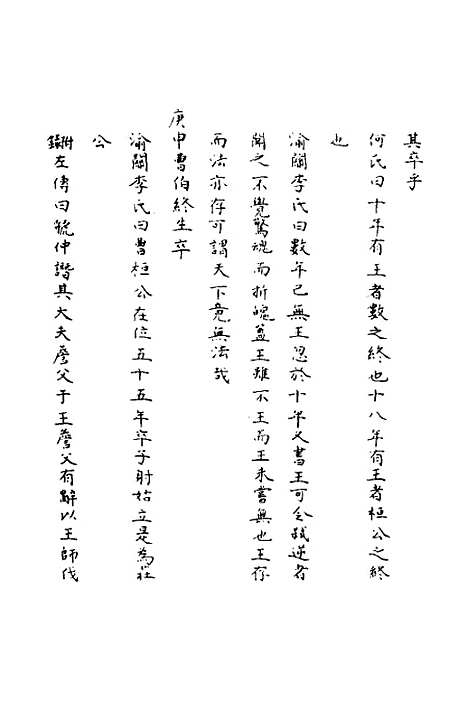 其卒乎
何氏曰十年有王者數之終也十八年有王者桓公之終
也
渝關李氏曰數年已無王忽於十年又書王可令弑逆者
聞之不覺驚魂而折魄蓋王雖不王而王未嘗無也王存
而法亦存可謂天下竟無法哉
庚申曹伯終生卒
渝關李氏曰曹桓公在位五十五年卒子射姑立是為莊
公
附錄左傳曰虢仲譖其大夫詹父于王詹父有辭以王師伐